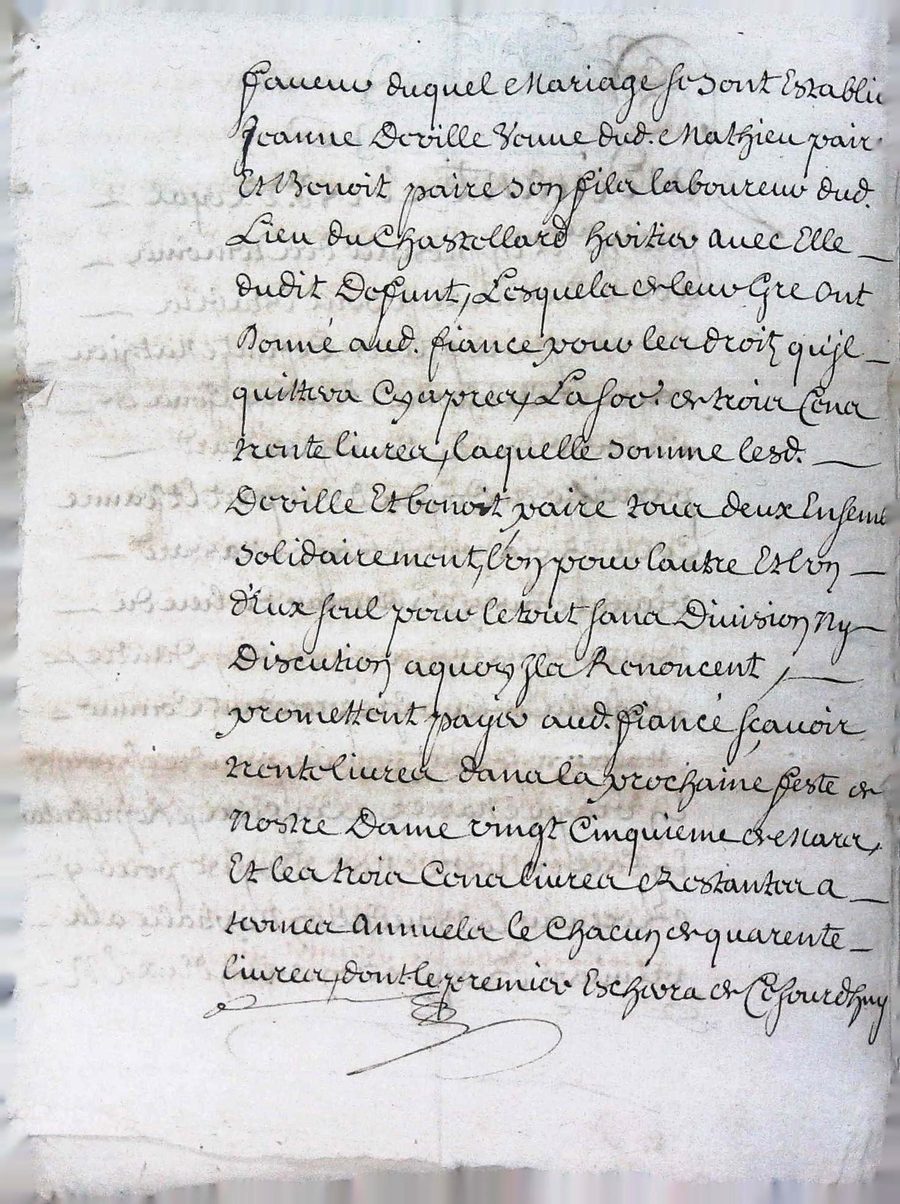 faveur duquel Mariage se sont Establie
Jeanne Deville Vefue dud. Mathieu pair
Et Benoit paire son fils laboureur dud.
Lieu du Chastellard heritier avec Elle
dudit Defunt, Lesquels de leur Gre ont
Donné aud. fiance pour les droitz qu'jl
quittera Cyapres, La soe. de trois Cens
trente livres, laquelle somme lesd.
Deville Et benoit paire tous deux Ensemb
solidairement, l'vn pour lautre Et lvn
d'Eux seul pour le tout sans Division Ny
Discution aquoy Jls Renoncent,
promettent payer aud. fiancé sçavoir
trente livres dans la prochaine feste de
Nostre Dame vingt Cinquieme de Mars,
Et les trois Cens livres Restantes a
termes Annuels le Chacun de quarente
livres, dont le premier Eschera de Cejourdhuy